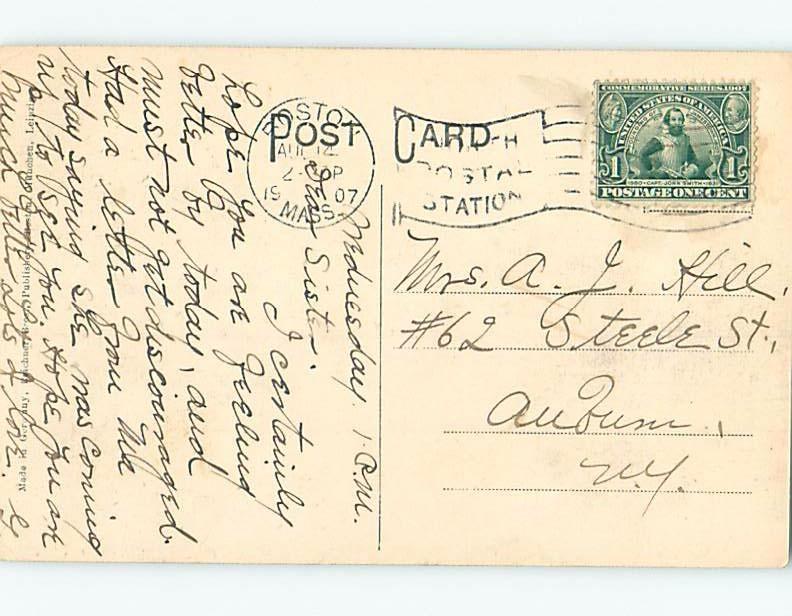 POST CARD
BOSTON
AUG 14
2-30P
1907
MASS.
POSTAL
STATION
COMMEMORATIVE SERIES 1907
UNITED STATES OF AMERICA
1 1
1580-CAPT. JOHN SMITH-1631
POSTAGE ONE CENT
Mrs. A. J. Hill,
#62 Steele St.,
Auburn,
N.Y.
Wednesday 1 P.M.
Dear Sister:
I certainly
hope you are feeling
better by today, and
must not get discouraged.
Had a letter from
today saying she was coming
up to see you. Hope you are
much better
lots of love.
Made in Germany, Publishers, Leipzig